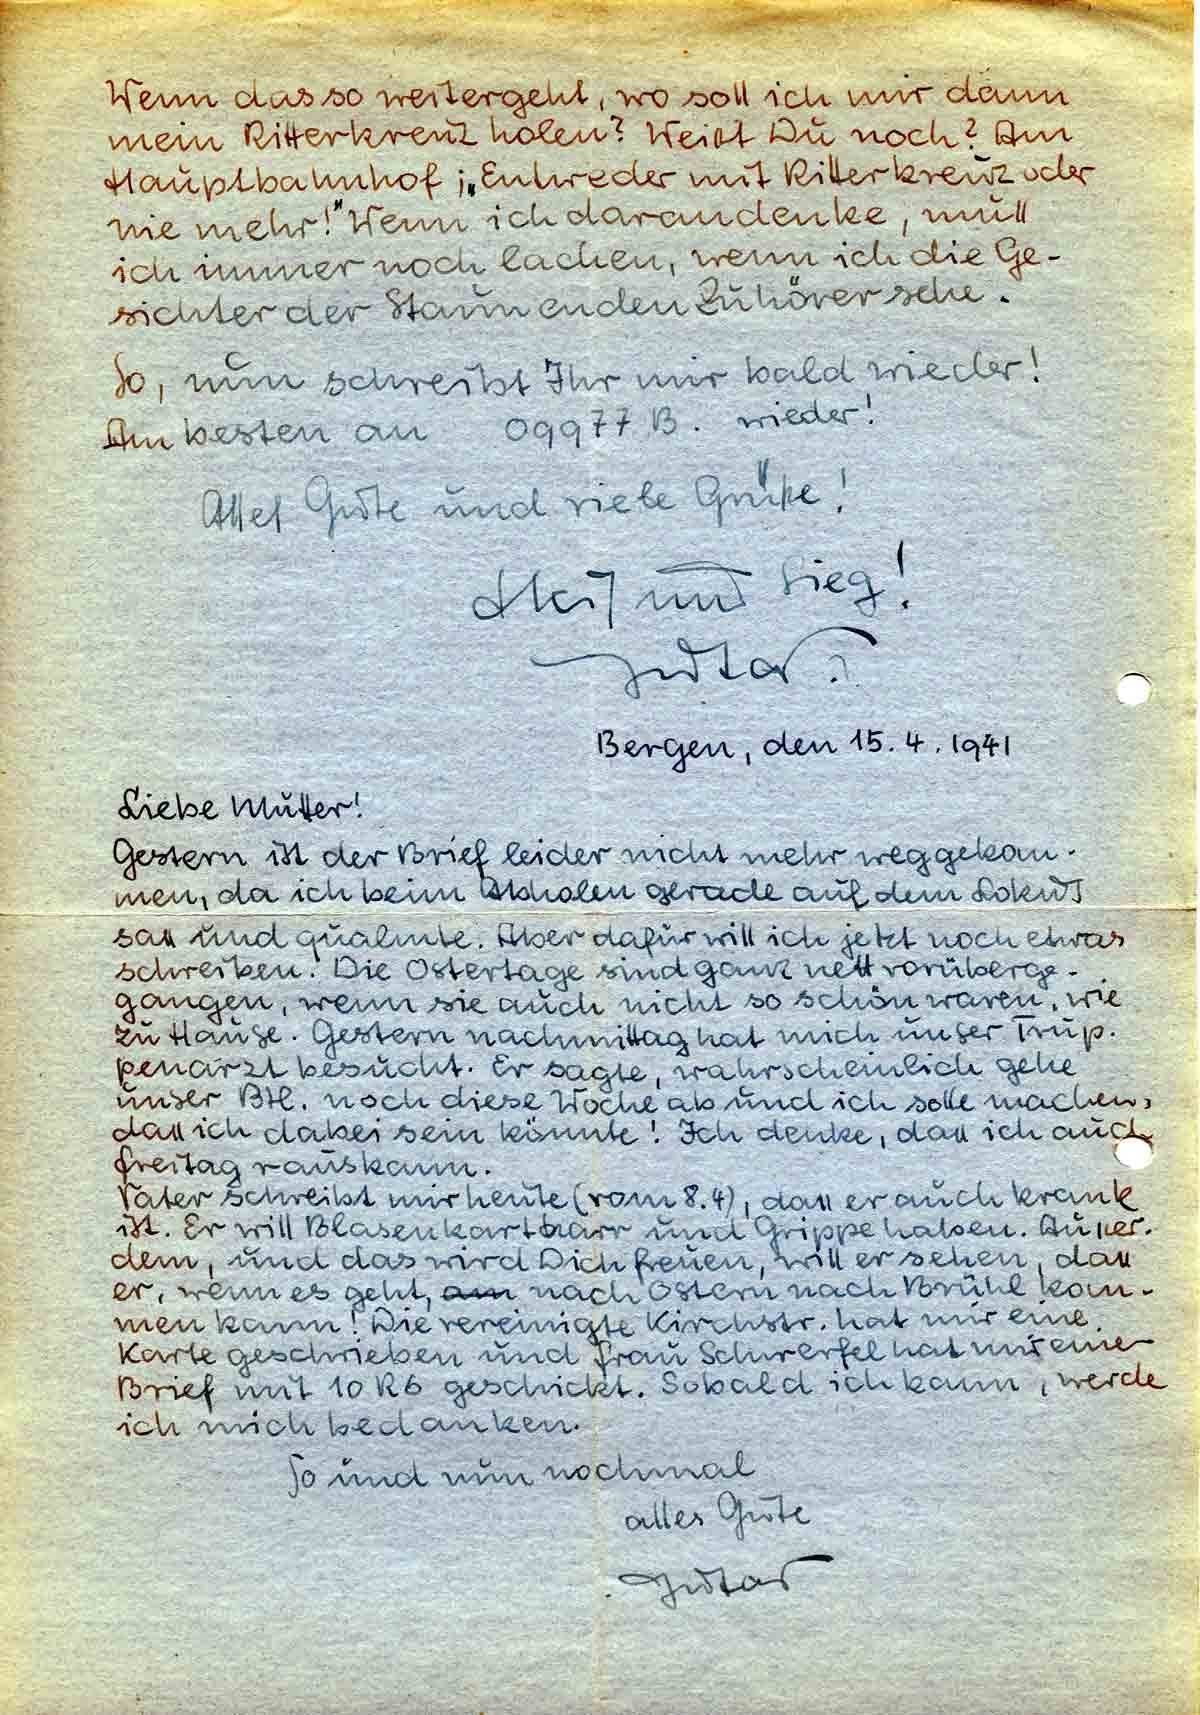 Wenn das so weitergeht, wo soll ich mir dann
mein Ritterkreuz holen? Weißt Du noch? Am
Hauptbahnhof; „Entweder mit Ritterkreuz oder
nie mehr!" Wenn ich darandenke, muß
ich immer noch lachen, wenn ich die Ge-
sichter der Staunenden Zuhörer sehe.
So, nun schreibt Ihr mir bald wieder!
Am besten an 09977 B. wieder!
Alles Gute und viele Grüße!
Heil und Sieg!
Gustav.
Bergen, den 15.4.1941
Liebe Mutter!
Gestern ist der Brief leider nicht mehr weggekom-
men, da ich beim Abholen gerade auf dem Lokus
saß und qualmte. Aber dafür will ich jetzt noch etwas
schreiben. Die Ostertage sind ganz nett vorüberge-
gangen, wenn sie auch nicht so schön waren, wie
zu Hause. Gestern nachmittag hat mich unser Trup-
penarzt besucht. Er sagte, wahrscheinlich gehe
unser Btl. noch diese Woche ab und ich solle machen,
daß ich dabei sein könnte! Ich denke, daß ich auch
Freitag rauskann.
Vater schreibt mir heute (vom 8.4), daß er auch krank
ist. Er will Blasenkartharr und Grippe haben. Außer-
dem, und das wird Dich freuen, will er sehen, daß
er, wenn es geht, am nach Ostern nach Brühl kom-
men kann! Die vereinigte Kirchstr. hat mir eine
Karte geschrieben und Frau hat mir einen
Brief mit 10 Rb geschickt. Sobald ich kann, werde
ich mich bedanken.
So und nun nochmal
alles Gute
Gustav